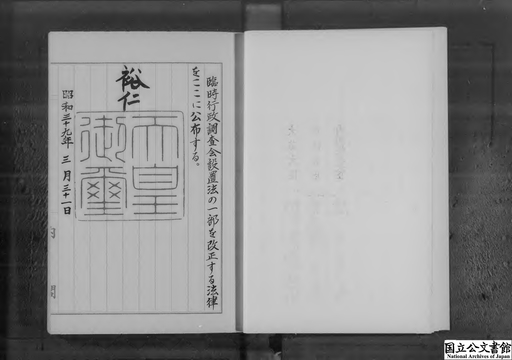 臨時行政調査会設置法の一部を改正する法律
をここに公布する。
裕仁
天皇
御璽
昭和三十九年三月三十一日
国立公文書館
National Archives of Japan